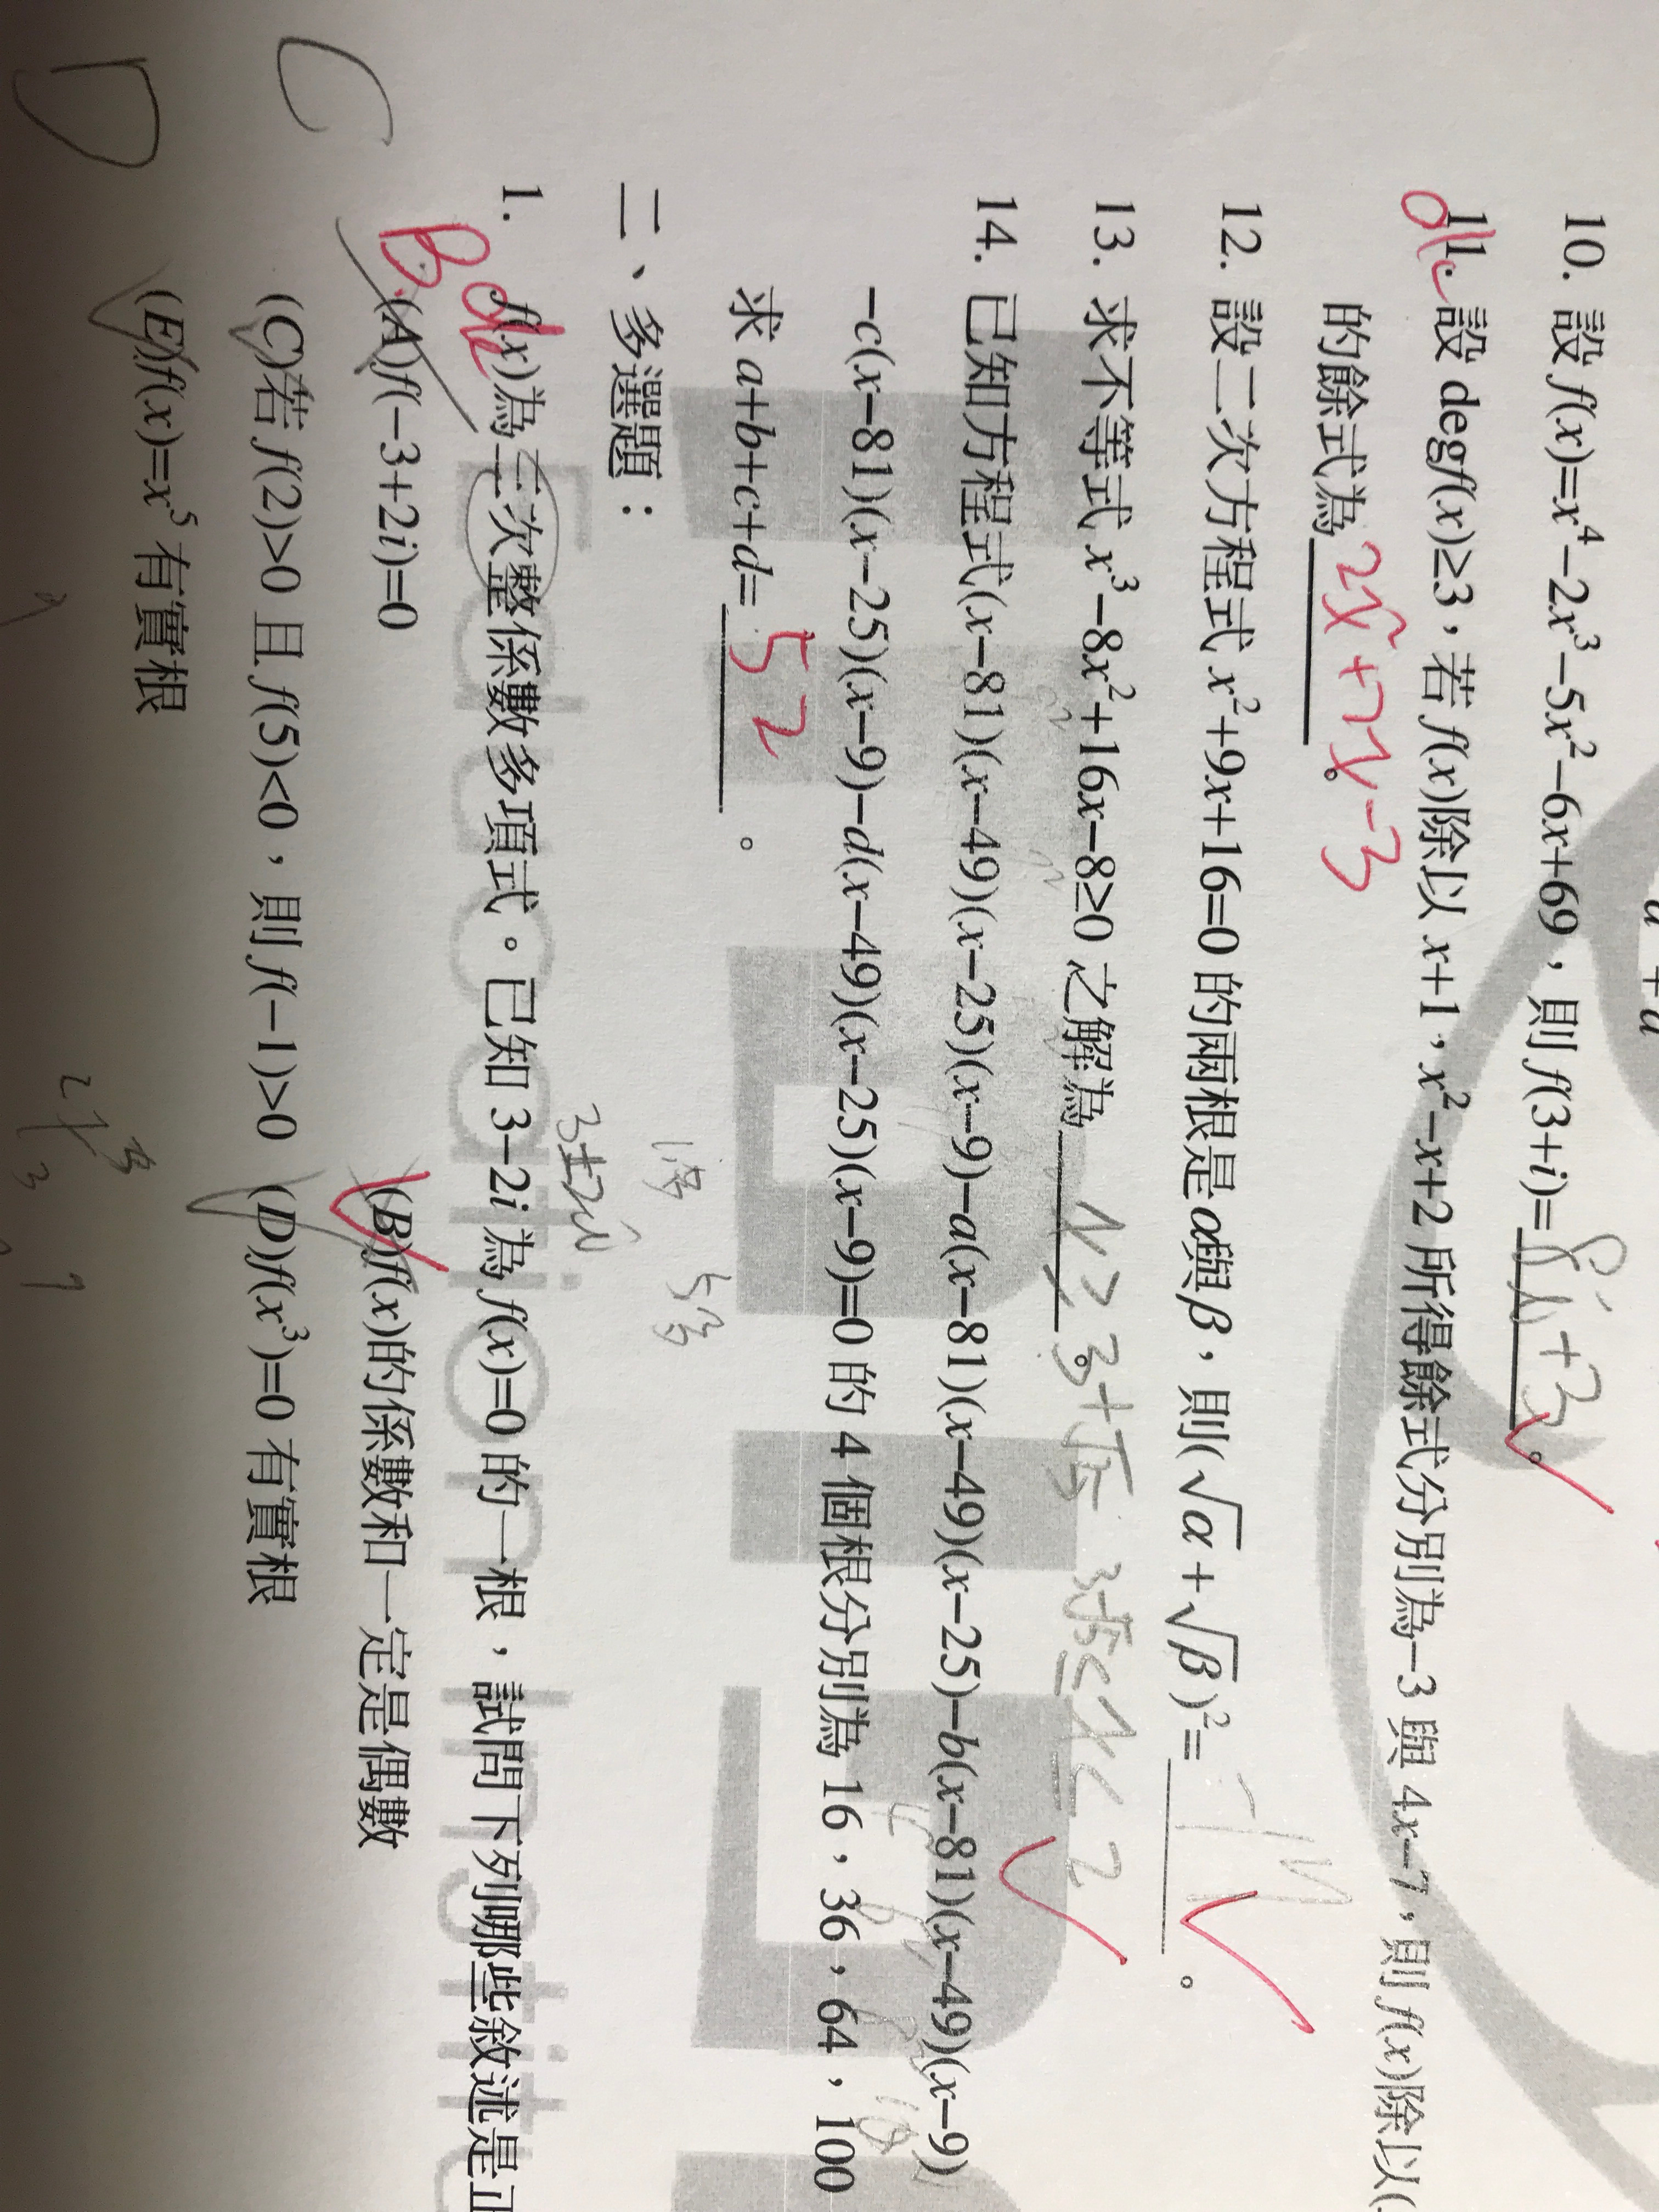 10. 設 f(x)=x⁴−2x³−5x²−6x+69，則 f(3+i)= 8i+3 。
11. 設 degf(x)≥3，若 f(x)除以 x+1，x²−x+2 所得餘式分別為−3 與 4x−7，則 f(x)除以(
的餘式為 2x²+2x−3 。
12. 設二次方程式 x²+9x+16=0 的兩根是α與β，則(√α+√β)²= −17 。
13. 求不等式 x³−8x²+16x−8≥0 之解為 x≥3+√5 3−√5≤x≤2 。
14. 已知方程式(x−81)(x−49)(x−25)(x−9)−a(x−81)(x−49)(x−25)−b(x−81)(x−49)(x−9)
−c(x−81)(x−25)(x−9)−d(x−49)(x−25)(x−9)=0 的 4 個根分別為 16，36，64，100
求 a+b+c+d= 52 。
二、多選題：
3±2i
1. f(x)為三次整係數多項式。已知 3−2i 為 f(x)=0 的一根，試問下列哪些敘述是正
B
(A)f(−3+2i)=0 (B)f(x)的係數和一定是偶數
C
(C)若 f(2)>0 且 f(5)<0，則 f(−1)>0 (D)f(x³)=0 有實根
D
(E)f(x)=x⁵ 有實根